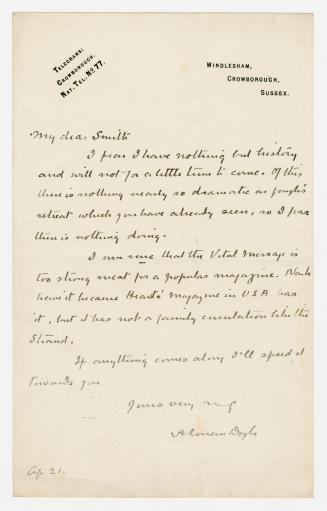 TELEGRAMS:
CROWBOROUGH.
NAT. TEL. NO. 77.
WINDLESHAM,
CROWBOROUGH,
SUSSEX.
My dear Smith
I fear I have nothing but history
and will not for a little time to come. Of this
there is nothing nearly so dramatic as Gough's
retreat which you have already seen, so I fear
there is nothing doing.
I am sure that the Vital Message is
too strong meat for a popular magazine.
have it because Hearst's Magazine in USA has
it, but it has not a family circulation like the
Strand.
If anything comes along I'll speed it
towards you
Yours very
A Conan Doyle
Ap. 21.